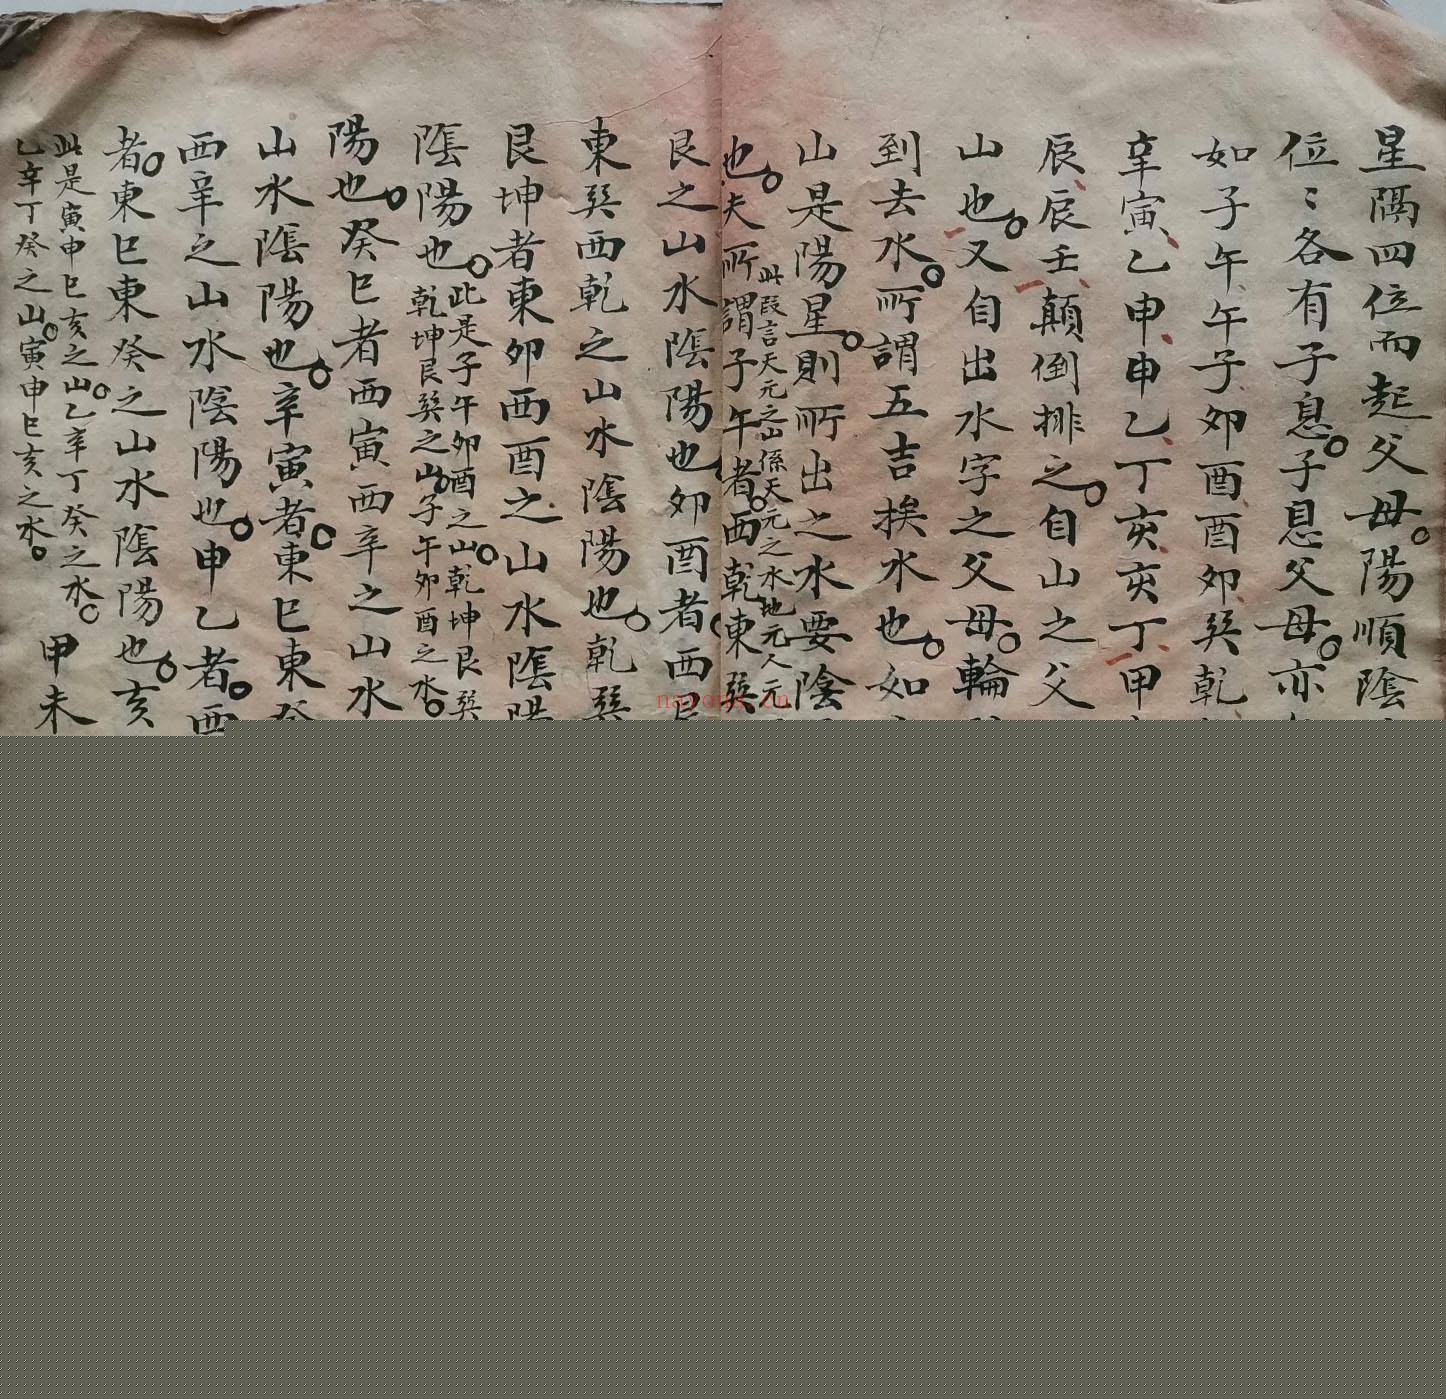 星隔四位而起父母。陽順陰
位〻各有子息。子息父母。亦
如子午午子卯酉酉卯巽乾
辛寅乙申申乙丁亥亥丁甲
辰辰壬顛倒排之。自山之父
山也。又自出水字之父母。輪
到去水。所謂五吉挨水也。如
山是陽星。則所出之水要陰
此叚言天元之山係天元之水地元人元
也。夫所謂子午者。西乾東巽
艮之山水陰陽也卯酉者西
東巽西乾之山水陰陽也。乾巽
艮坤者東卯西酉之山水陰陽
陰陽也。此是子午卯酉之山。乾坤艮巽
乾坤艮巽之山。子午卯酉之水。
陽也。癸巳者西寅西辛之山水
山水陰陽也。辛寅者。東巳東癸
西辛之山水陰陽也。申乙者。西
者。東巳東癸之山水陰陽也。亥
此是寅申巳亥之山。乙辛丁癸之水。
乙辛丁癸之山。寅申巳亥之水。
甲未
nayona.cn